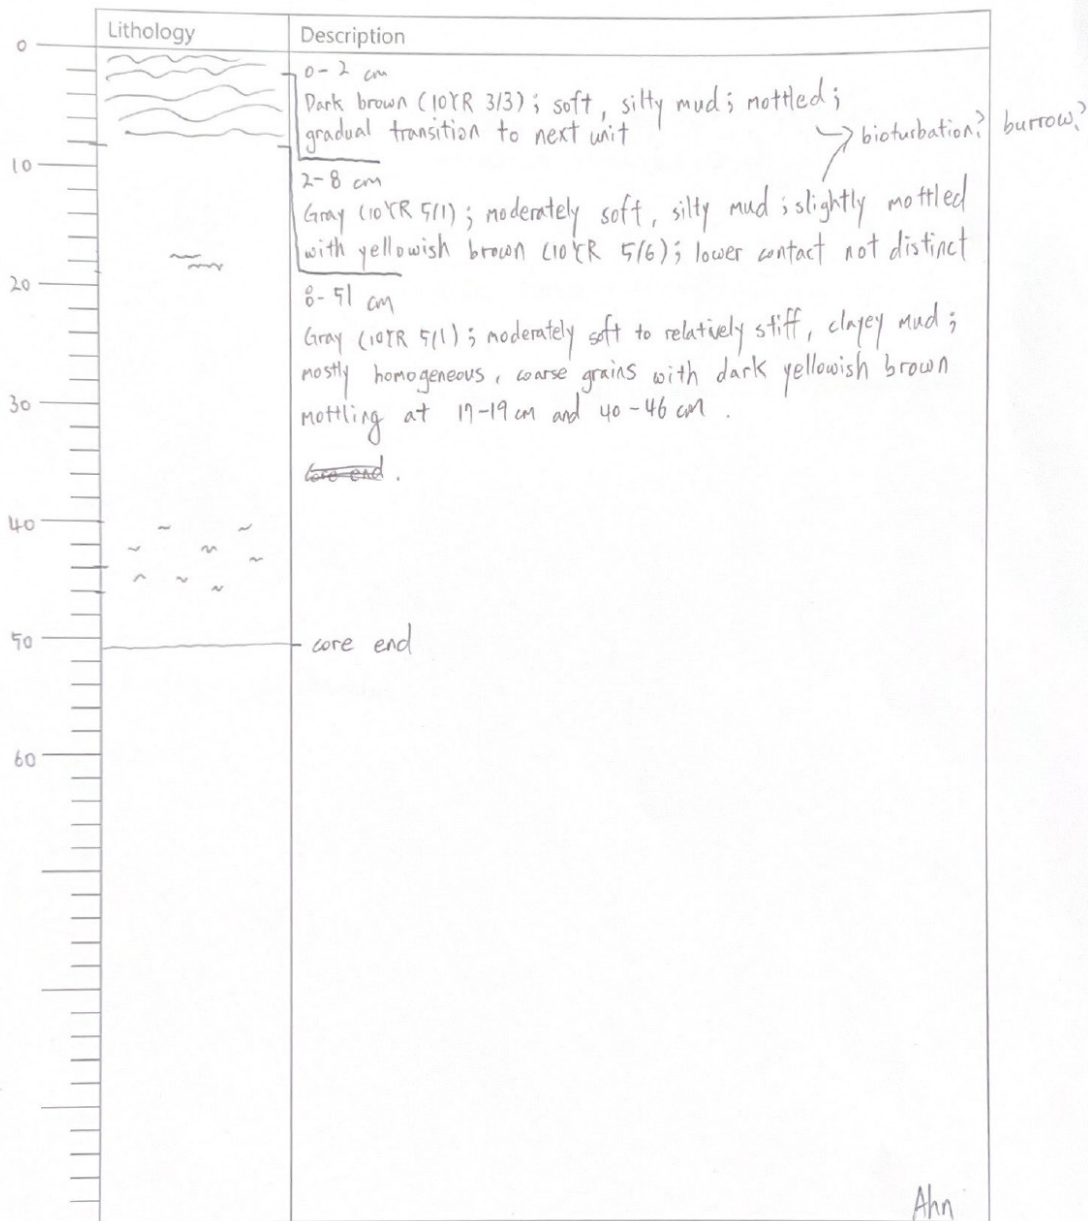 Lithology
Description
0
0-2 cm
Dark brown (10YR 3/3); soft, silty mud; mottled;
gradual transition to next unit
bioturbation? burrow?
10
2-8 cm
Gray (10YR 5/1); moderately soft, silty mud; slightly mottled
with yellowish brown (10YR 5/6); lower contact not distinct
20
8-51 cm
Gray (10YR 5/1); moderately soft to relatively stiff, clayey mud;
mostly homogeneous, coarse grains with dark yellowish brown
30
mottling at 17-19 cm and 40-46 cm.
core end.
40
50
core end
60
Ahn